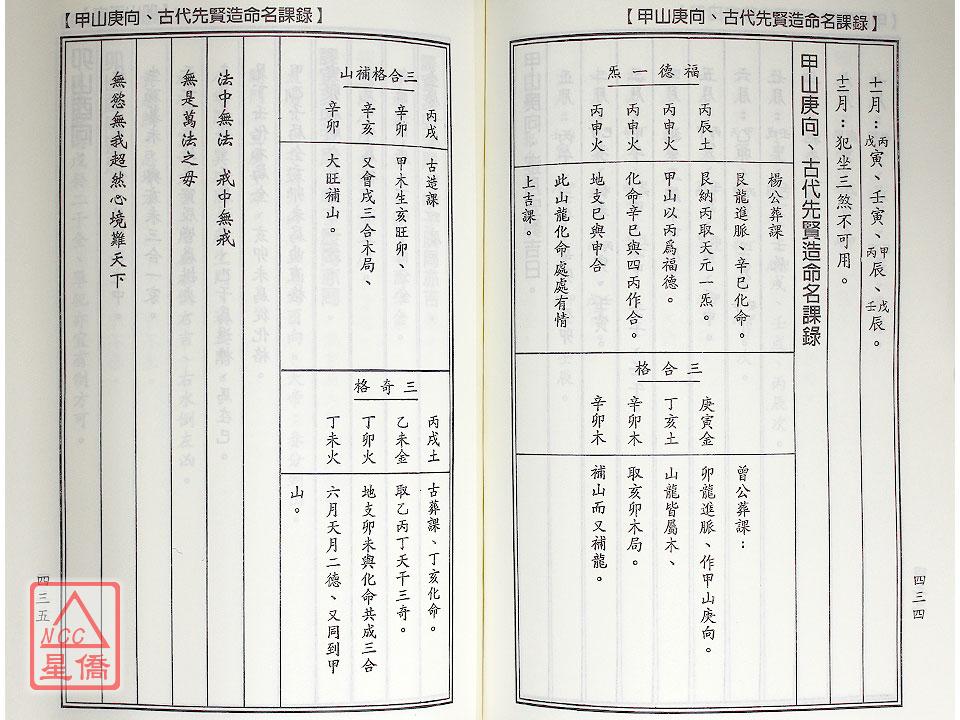 【甲山庚向、古代先賢造命名課錄】
十一月：丙戊寅、壬寅、甲丙辰、戊壬辰。
十二月：犯坐三煞不可用。
甲山庚向、古代先賢造命名課錄
福德一炁
丙辰土
丙申火
丙申火
楊公葬課
艮龍進脈、辛巳化命。
艮納丙取天元一炁。
甲山以丙爲福德。
化命辛巳與四丙作合。
地支巳與申合
此山龍化命處處有情
上吉課。
三合格
庚寅金
丁亥土
辛卯木
辛卯木
曾公葬課：
卯龍進脈、作甲山庚向。
山龍皆屬木、
取亥卯木局。
補山而又補龍。
四三四
【甲山庚向、古代先賢造命名課錄】
三合格補山
丙戌
辛卯
辛亥
辛卯
古造課
甲木生亥旺卯、
又會戌三合木局、
大旺補山。
三奇格
丙戌土
乙未金
丁卯火
丁未火
古葬課、丁亥化命。
取乙丙丁天干三奇。
地支卯未與化命共成三合
六月天月二德、又同到甲
山。
法中無法　戒中無戒
無是萬法之母
無慾無我超然心境難天下
四三五
NCC
星僑